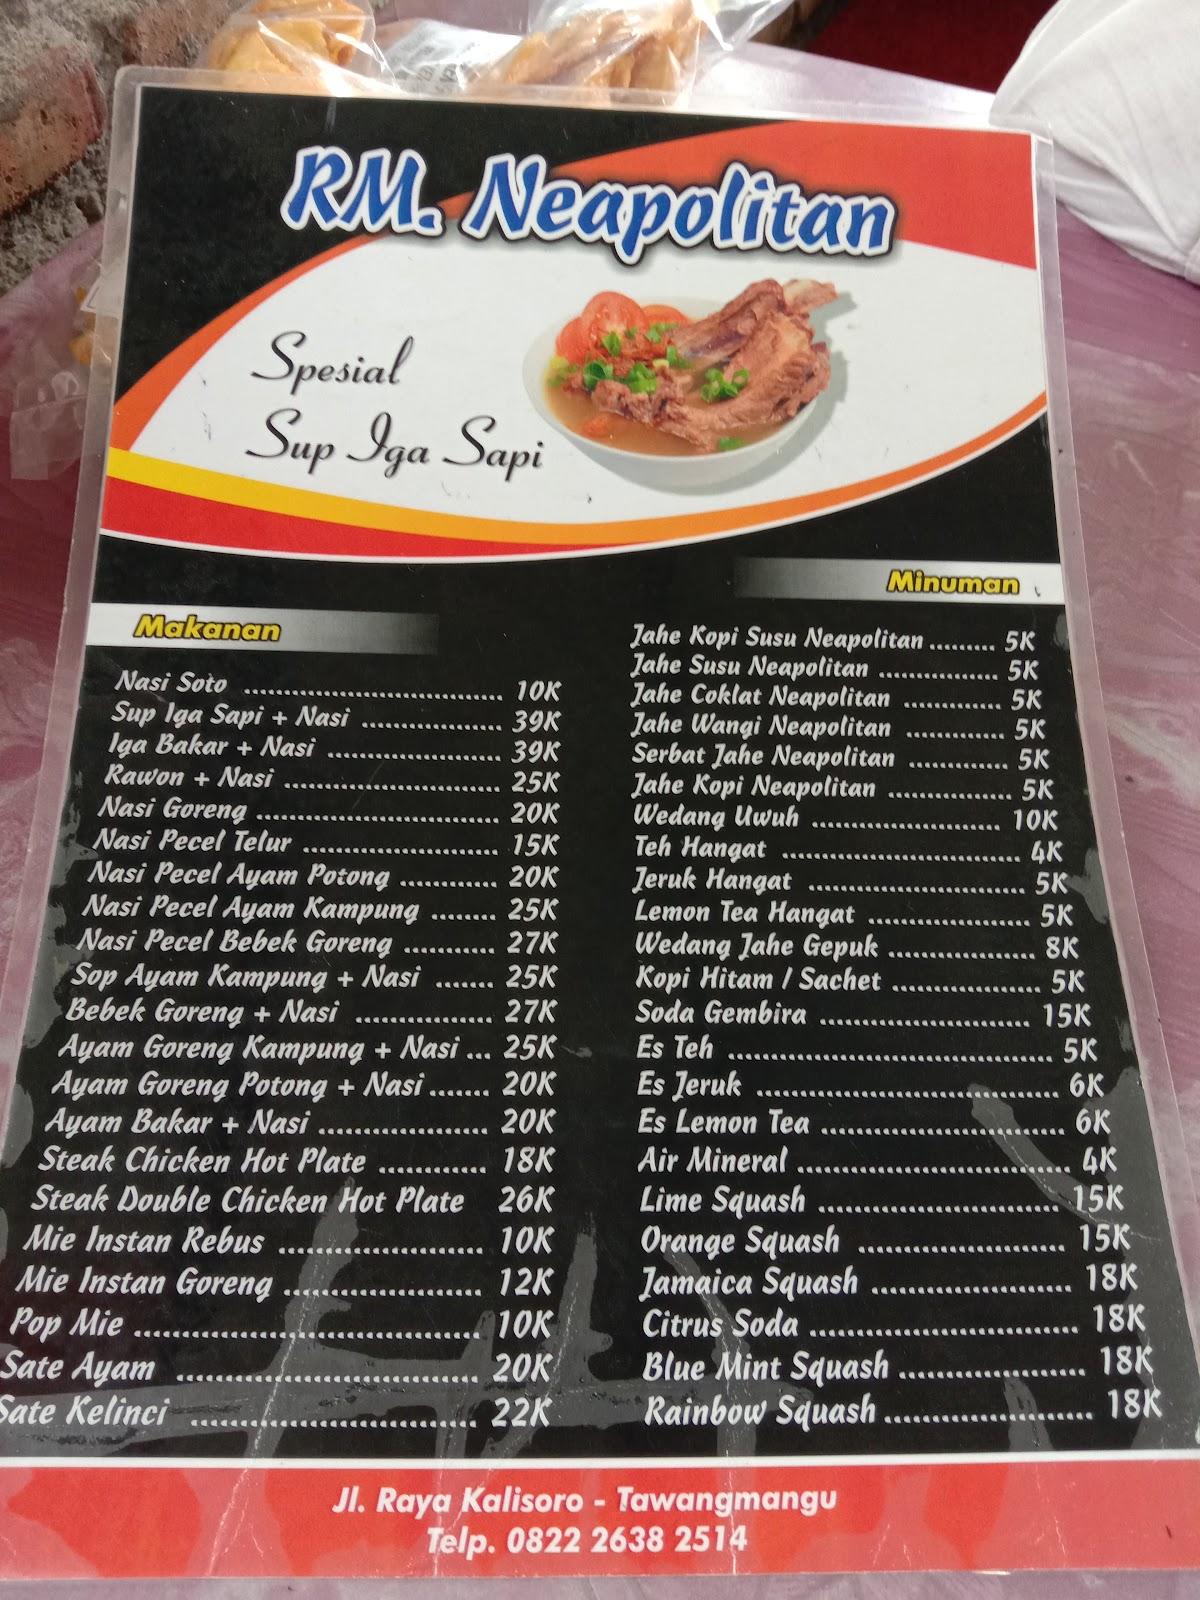 RM. Neapolitan
Spesial
Sup Iga Sapi
Makanan
Nasi Soto ................................ 10K
Sup Iga Sapi + Nasi .................. 39K
Iga Bakar + Nasi ...................... 39K
Rawon + Nasi ........................... 25K
Nasi Goreng .............................. 20K
Nasi Pecel Telur ........................ 15K
Nasi Pecel Ayam Potong ............ 20K
Nasi Pecel Ayam Kampung ........ 25K
Nasi Pecel Bebek Goreng ........... 27K
Sop Ayam Kampung + Nasi ....... 25K
Bebek Goreng + Nasi ................ 27K
Ayam Goreng Kampung + Nasi ... 25K
Ayam Goreng Potong + Nasi ....... 20K
Ayam Bakar + Nasi .................... 20K
Steak Chicken Hot Plate ............. 18K
Steak Double Chicken Hot Plate 26K
Mie Instan Rebus ....................... 10K
Mie Instan Goreng ..................... 12K
Pop Mie ..................................... 10K
Sate Ayam ................................ 20K
Sate Kelinci ............................... 22K
Minuman
Jahe Kopi Susu Neapolitan ......... 5K
Jahe Susu Neapolitan ................. 5K
Jahe Coklat Neapolitan .............. 5K
Jahe Wangi Neapolitan .............. 5K
Serbat Jahe Neapolitan .............. 5K
Jahe Kopi Neapolitan ................. 5K
Wedang Uwuh .......................... 10K
Teh Hangat ............................... 4K
Jeruk Hangat ............................ 5K
Lemon Tea Hangat .................... 5K
Wedang Jahe Gepuk ................... 8K
Kopi Hitam / Sachet ................... 5K
Soda Gembira ........................... 15K
Es Teh ........................................ 5K
Es Jeruk ..................................... 6K
Es Lemon Tea ............................ 6K
Air Mineral ................................ 4K
Lime Squash .............................. 15K
Orange Squash .......................... 15K
Jamaica Squash ........................ 18K
Citrus Soda ............................... 18K
Blue Mint Squash ...................... 18K
Rainbow Squash ........................ 18K
Jl. Raya Kalisoro - Tawangmangu
Telp. 0822 2638 2514